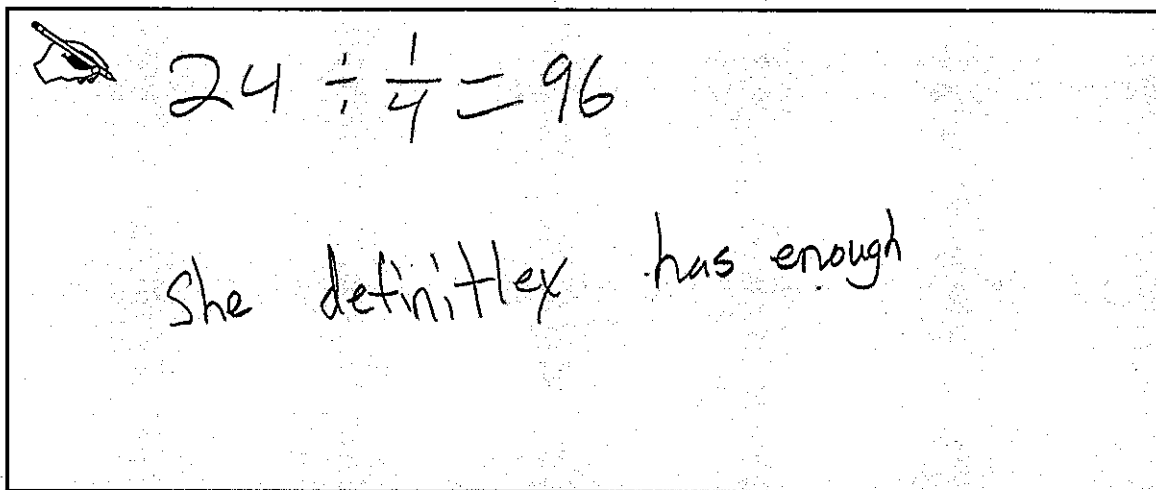 24 ÷ 1/4 = 96
She definitley has enough